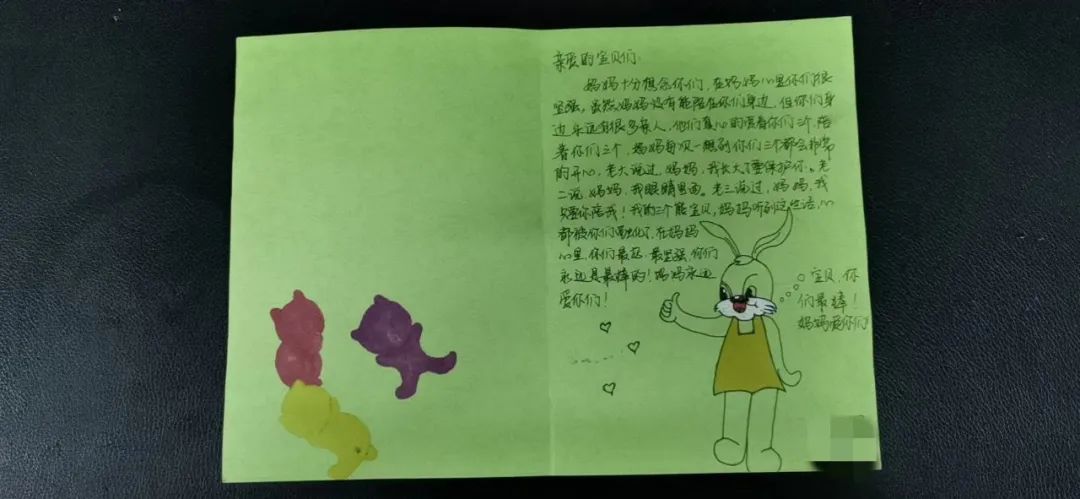 亲爱的宝贝们:
妈妈十分想念你们,在妈妈心里你们很
坚强,虽然妈妈没有能陪在你们身边,但你们身
边永远有很多亲人,他们真心的爱着你们三个,陪
着你们三个,妈妈每次一想到你们三个都会非常
的开心,老大说过,妈妈,我长大了要保护你。老
二说,妈妈,我眼睛里面。老三说过,妈妈,我
只要你陪我!我的三个熊宝贝,妈妈听到这些话,心
都被你们融化了,在妈妈
心里,你们最,最坚强,你们
永远是最棒的!妈妈永远
爱你们!
宝贝,你
们最棒!
妈妈爱你们!